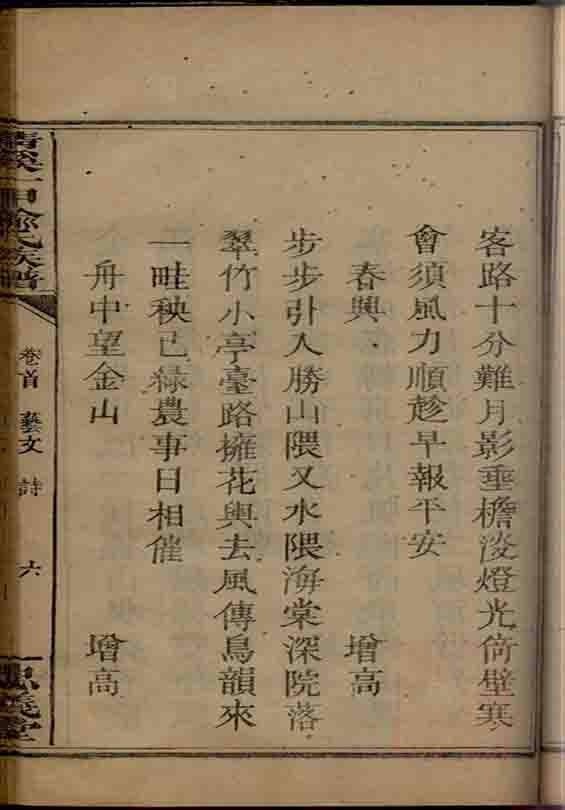 客路十分難月影垂檐淡燈光倚壁寒
會須風力順趁早報平安
春興 增高
步步引入勝山隈又水隈海棠深院落
翠竹小亭臺路擁花輿去風傳鳥韻來
一畦秧已綠農事日相催
舟中望金山 增高
清溪一甲鄒氏族譜
卷首 藝文 詩 六
忠義堂